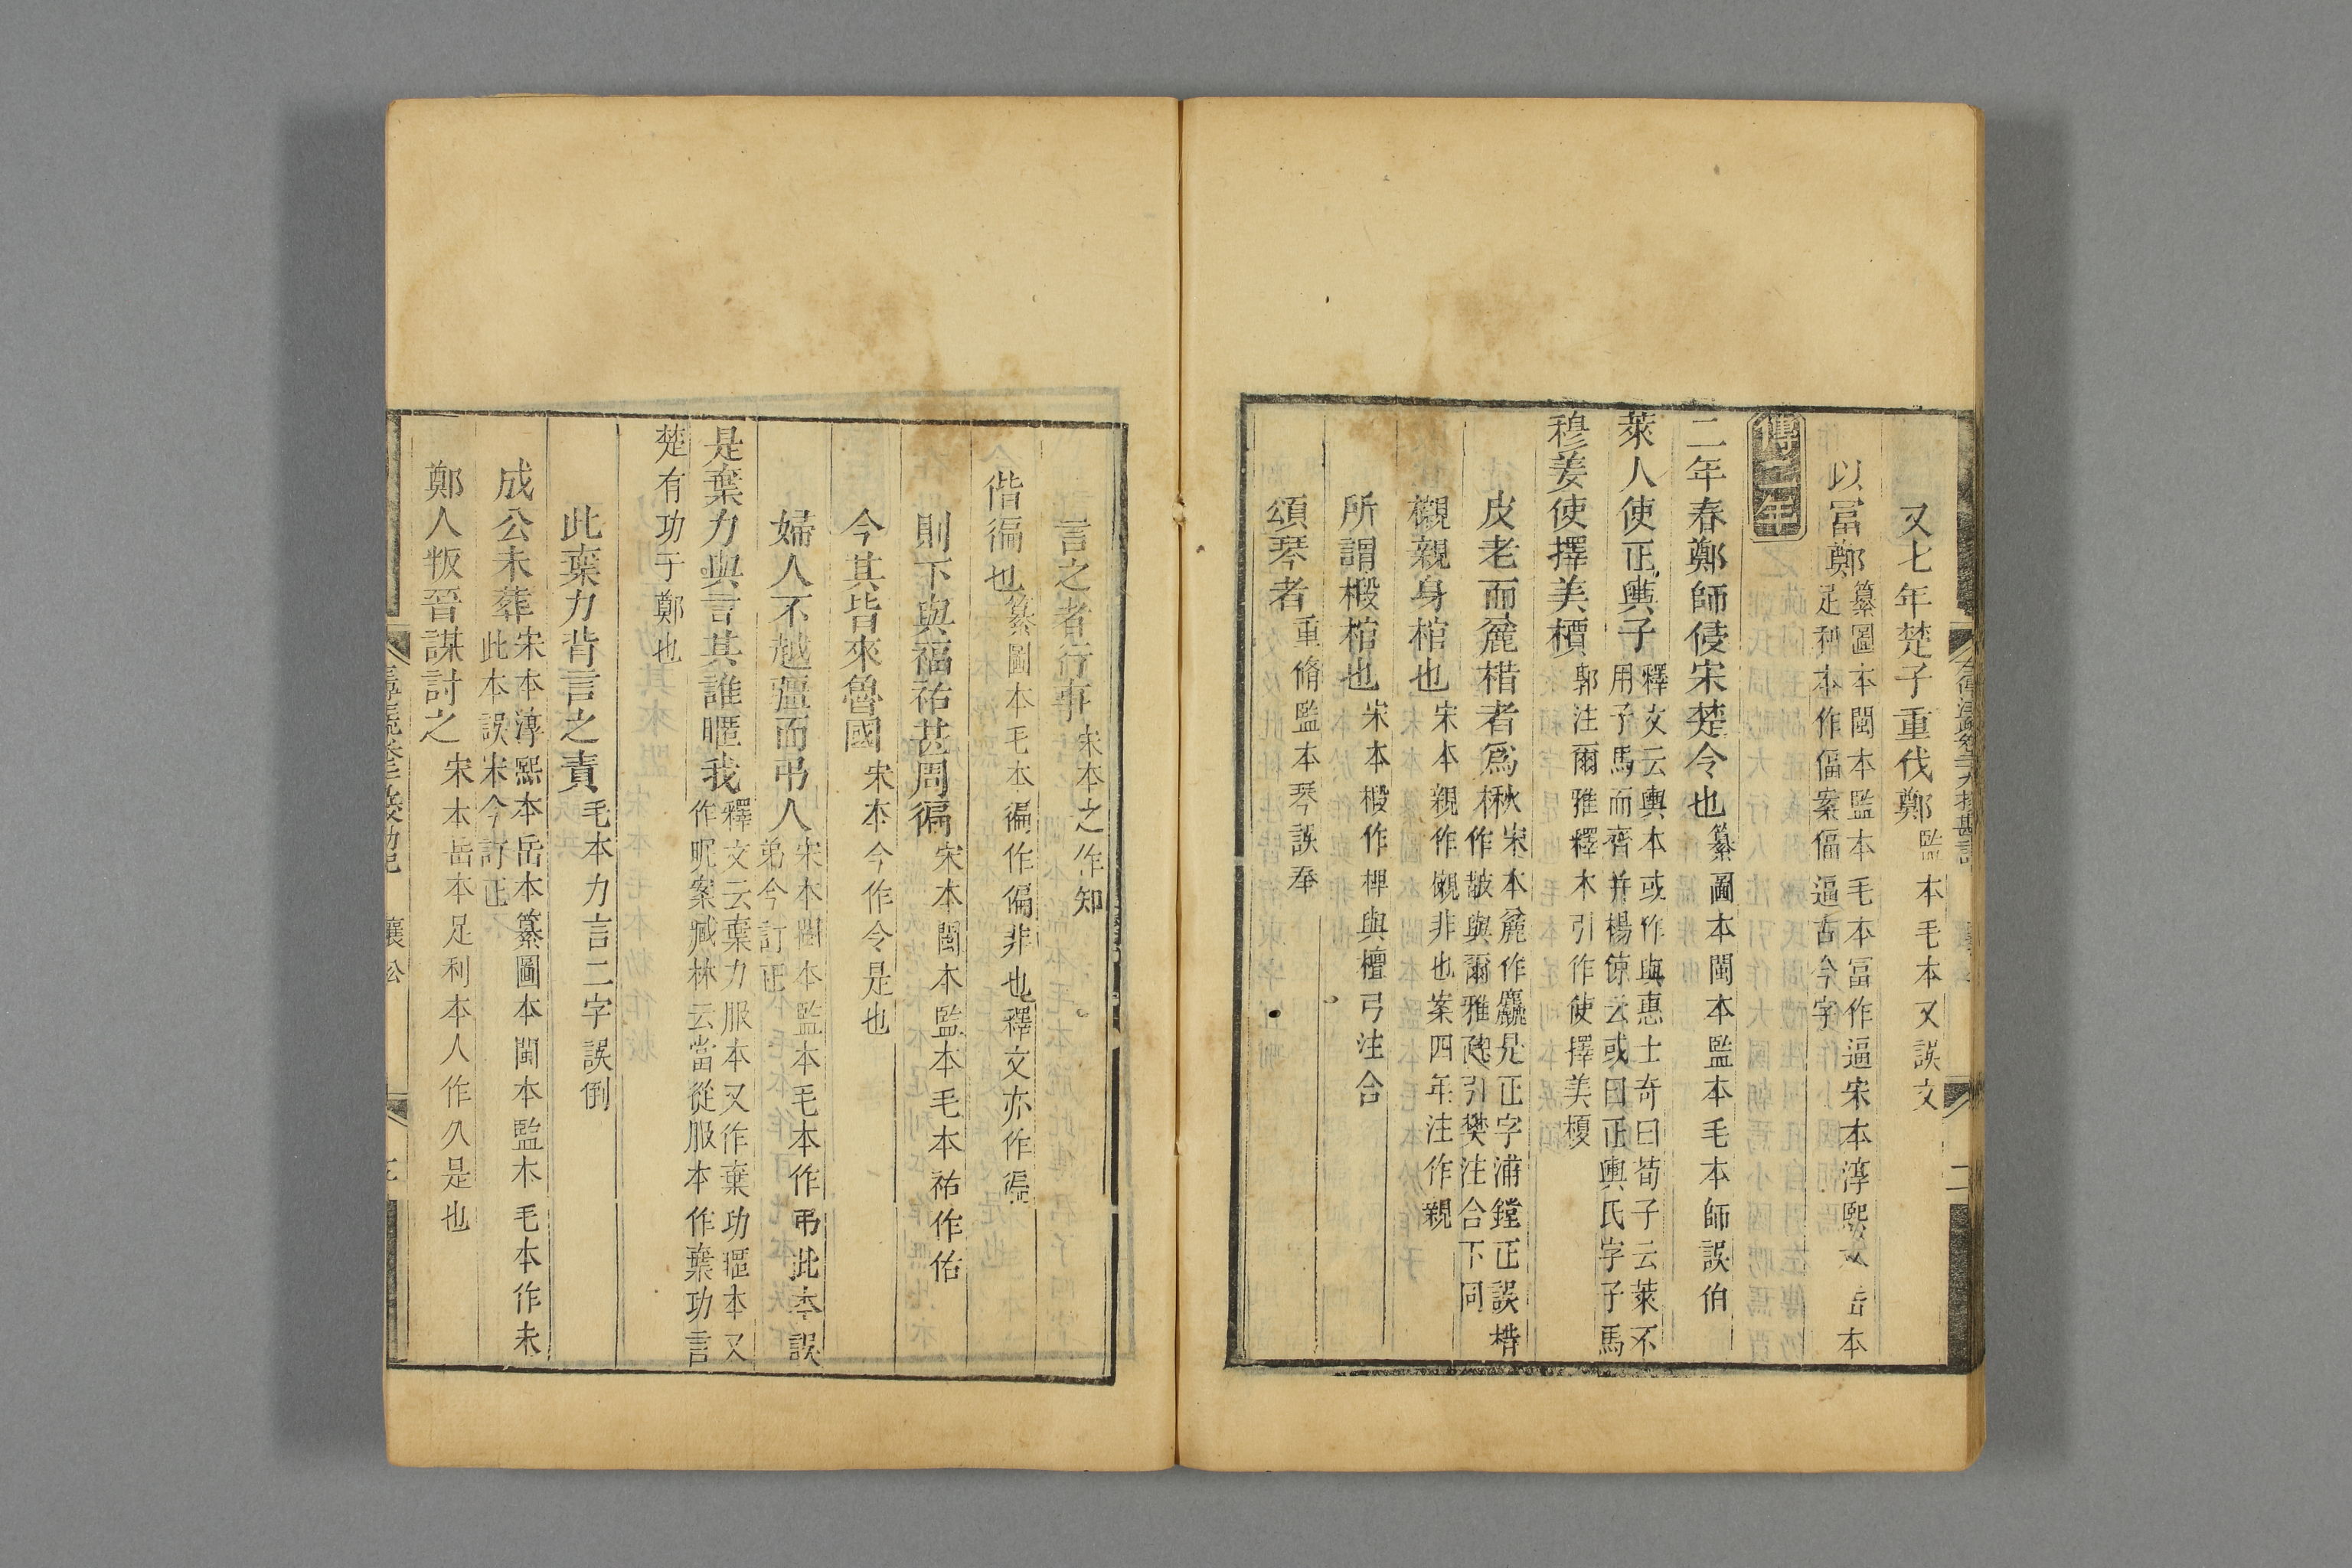 又七年楚子重伐鄭監本毛本又誤文
以冨鄭纂圖本閩本監本毛本冨作逼宋本淳熙本岳本
足利本作偪案偪逼古今字
傳二年
二年春鄭師侵宋楚令也纂圖本閩本監本毛本師誤伯
萊人使正輿子釋文云輿本或作與惠士奇曰荀子云萊不
用子馬而齊并楊倞云或曰正輿氏字子馬
穆姜使擇美檟郭注爾雅釋木引作使擇美榎
皮老而麄楷者爲楸宋本麄作麤是正字浦鏜正誤楷
作皵與爾雅疏引樊注合下同
櫬親身棺也宋本親作櫬非也案四年注作親
所謂椴棺也宋本椴作椑與檀弓注合
頌琴者重脩監本琴誤奉
二
言之者行事宋本之作知
偕徧也纂圖本毛本徧作偏非也釋文亦作徧
則下與福祐甚周徧宋本閩本監本毛本祐作佑
今其皆來魯國宋本今作令是也
婦人不越疆而弔人宋本閩本監本毛本作弔此本誤
弟今訂正
是棄力與言其誰暱我釋文云棄力服本又作棄功暱本又
作昵案臧林云當從服本作棄功言
楚有功于鄭也
此棄力背言之責毛本力言二字誤倒
成公未葬宋本淳熙本岳本纂圖本閩本監本毛本作未
此本誤宋今訂正
鄭人叛晉謀討之宋本岳本足利本人作久是也
襄公